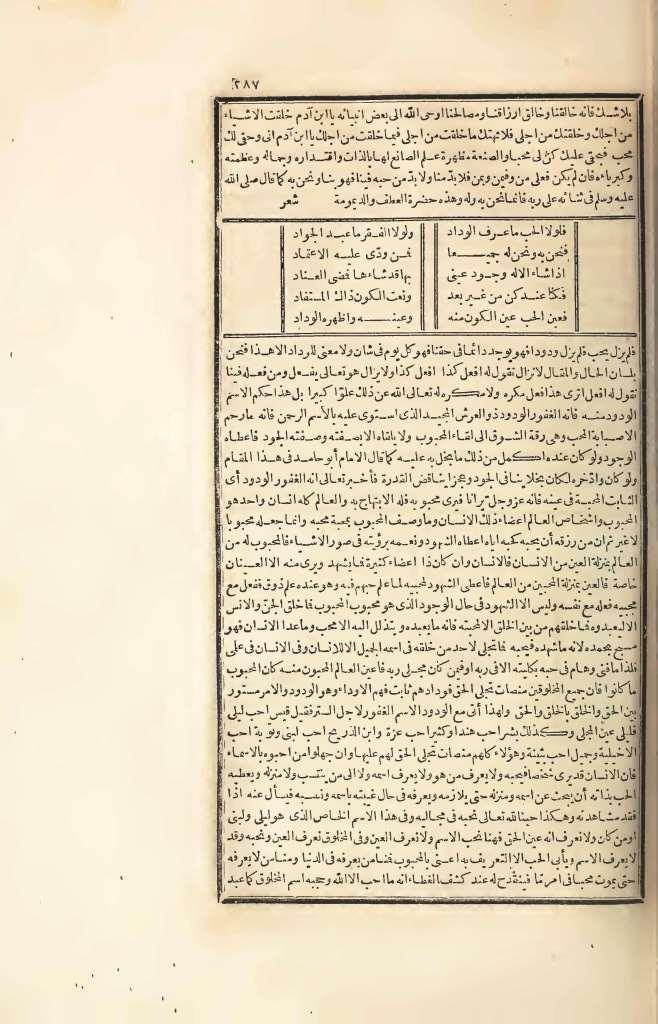 ٢٨٧
بلا شك فانه خالقنا وخالق ارزاقنا ومصالحنا اوحى الله الى بعض انبيائه يا ابن آدم خلقت الاشياء
من اجلك وخلقتك من اجلى فلا تهتك ما خلقت من اجلى فيما خلقت من اجلك يا ابن آدم انى وحقى لك
محب فبحقى عليك كن لى محبا والصنعة مظهرة علم الصانع لها بالذات واقتداره وجماله وعظمته
وكبرياءه فان لم يكن فعلى من وفيمن وبمن فلا بدّ منا ولا بدّ من حبه فينا فهو بنا ونحن به كما قال صلى الله
عليه وسلم فى ثنائه على ربه فانما نحن به وله وهذه حضرة العطف والديمومة شعر
فلولا الحب ما عرف الوداد ولولا الفقر ما عبد الجواد
فنحن به ونحن له جميعا فمن ودّى عليه الاعتماد
اذا شاء الاله وجود عينى بها قد شاءها فمضى العناد
فكنا عند كن من غير بعد ونعت الكون ذاك المستفاد
فعين الحب عين الكون منه وعينه واظهره الوداد
فلم يزل يحب فلم يزل ودودا فهو يوجد دائما فى حقنا فهو كل يوم فى شان ولا معنى للوداد الا هذا فنحن
بلسان الحال والمقال لا نزال نقول له افعل كذا افعل كذا ولا يزال هو تعالى يفعل ومن فعله فينا
نقول له افعل اترى هذا فعل مكره ولا مكره له تعالى الله عن ذلك علوّا كبيرا بل هذا حكم الاسم
الودود منه فانه الغفور الودود ذو العرش المجيد الذى استوى عليه بالاسم الرحمن فانه ما رحم
الا صبابة المحب وهى رقة الشوق الى لقاء المحبوب ولا يلقاه الا بصفته وصفته الجود فاعطاه
الوجود ولو كان عنده اكمل من ذلك ما بخل به عليه كما قال الامام أبو حامد فى هذا المقام
ولو كان وادّخره لكان بخلا ينافى الجود وعجزا يناقض القدرة فأخبر تعالى انه الغفور الودود أى
الثابت المحبة فى غيبه فانه عز وجل يرانا فيرى محبوبه فله الابتهاج به والعالم كله انسان واحد هو
المحبوب واشخاص العالم اعضاء ذلك الانسان وما وصف المحبوب بمحبة محبه وانما جعله محبوبا
لا غير ثم ان من رزقه أن يحبه كحبه اياه اعطاه الشهود ونعمه برؤيته فى صور الاشياء فالمحبوب له من
العالم بمنزلة العين من الانسان فالانسان وان كان ذا اعضاء كثيرة فما يشهد ويرى منه الا العينان
خاصة فالعين بمنزلة المحبين من العالم فاعطى الشهود لمحبيه لما علم حبهم فيه وهو عنده علم ذوق ففعل مع
محبيه فعله مع نفسه وليس الا الشهود فى حال الوجود الذى هو محبوب المحبوب فما خلق الجنّ والانس
الا ليعبدوه فما خلقهم من بين الخلق الا لمحبته فانه ما يعبده ويتذلل اليه الا محب وما عدا الانسان فهو
مسبح بحمده لانه ما شهده فيحبه فما تجلى لاحد من خلقه فى اسمه الجميل الا للانسان وفى الانسان فى علمى
فلذا ما فنى وهام فى حبه بكليته الا فى ربه او فيمن كان مجلى ربه فاعين العالم المحبون منه كان المحبوب
ما كانوا فان جميع المخلوقين منصات تجلى الحق فودادهم ثابت فهم الاوداء وهو الودود والامر مستور
بين الحق والخلق بالخلق والحق ولهذا أتى مع الودود الاسم الغفور لاجل الستر فقيل قيس احب ليلى
فليلى عين المجلى وكذلك بشر احب هند او كثير احب عزة وابن الذريح احب لبنى وتوبة احب
الاخيلية وجميل احب بثينة وهؤلاء كلهم منصات تجلى الحق لهم عليها وان جهلوا من احبوه بالاسماء
فان الانسان قد يرى شخصا فيحبه ولا يعرف من هو ولا يعرف اسمه ولا الى من ينتسب ولا منزله ويعطيه
الحب بذاته أن يبحث عن اسمه ومنزله حتى يلازمه ويعرفه فى حال غيبته باسمه ونسبه فيسأل عنه اذا
فقد مشاهدته وهكذا حبنا الله تعالى نحبه فى مجاليه وفى هذا الاسم الخاص الذى هو ليلى ولبنى
او من كان ولا نعرف انه عين الحق فهنا نحب الاسم ولا نعرف العين وفى المخلوق نعرف العين ونحبه وقد
لا يعرف الاسم ويأبى الحب الا التعريف به اعنى بالمحبوب فمنا من يعرفه فى الدنيا ومنا من لا يعرفه
حتى يموت محبا فى امر مّا فينقدح له عند كشف الغطاء انه ما احب الا الله وحجبه اسم المخلوق كما عبد